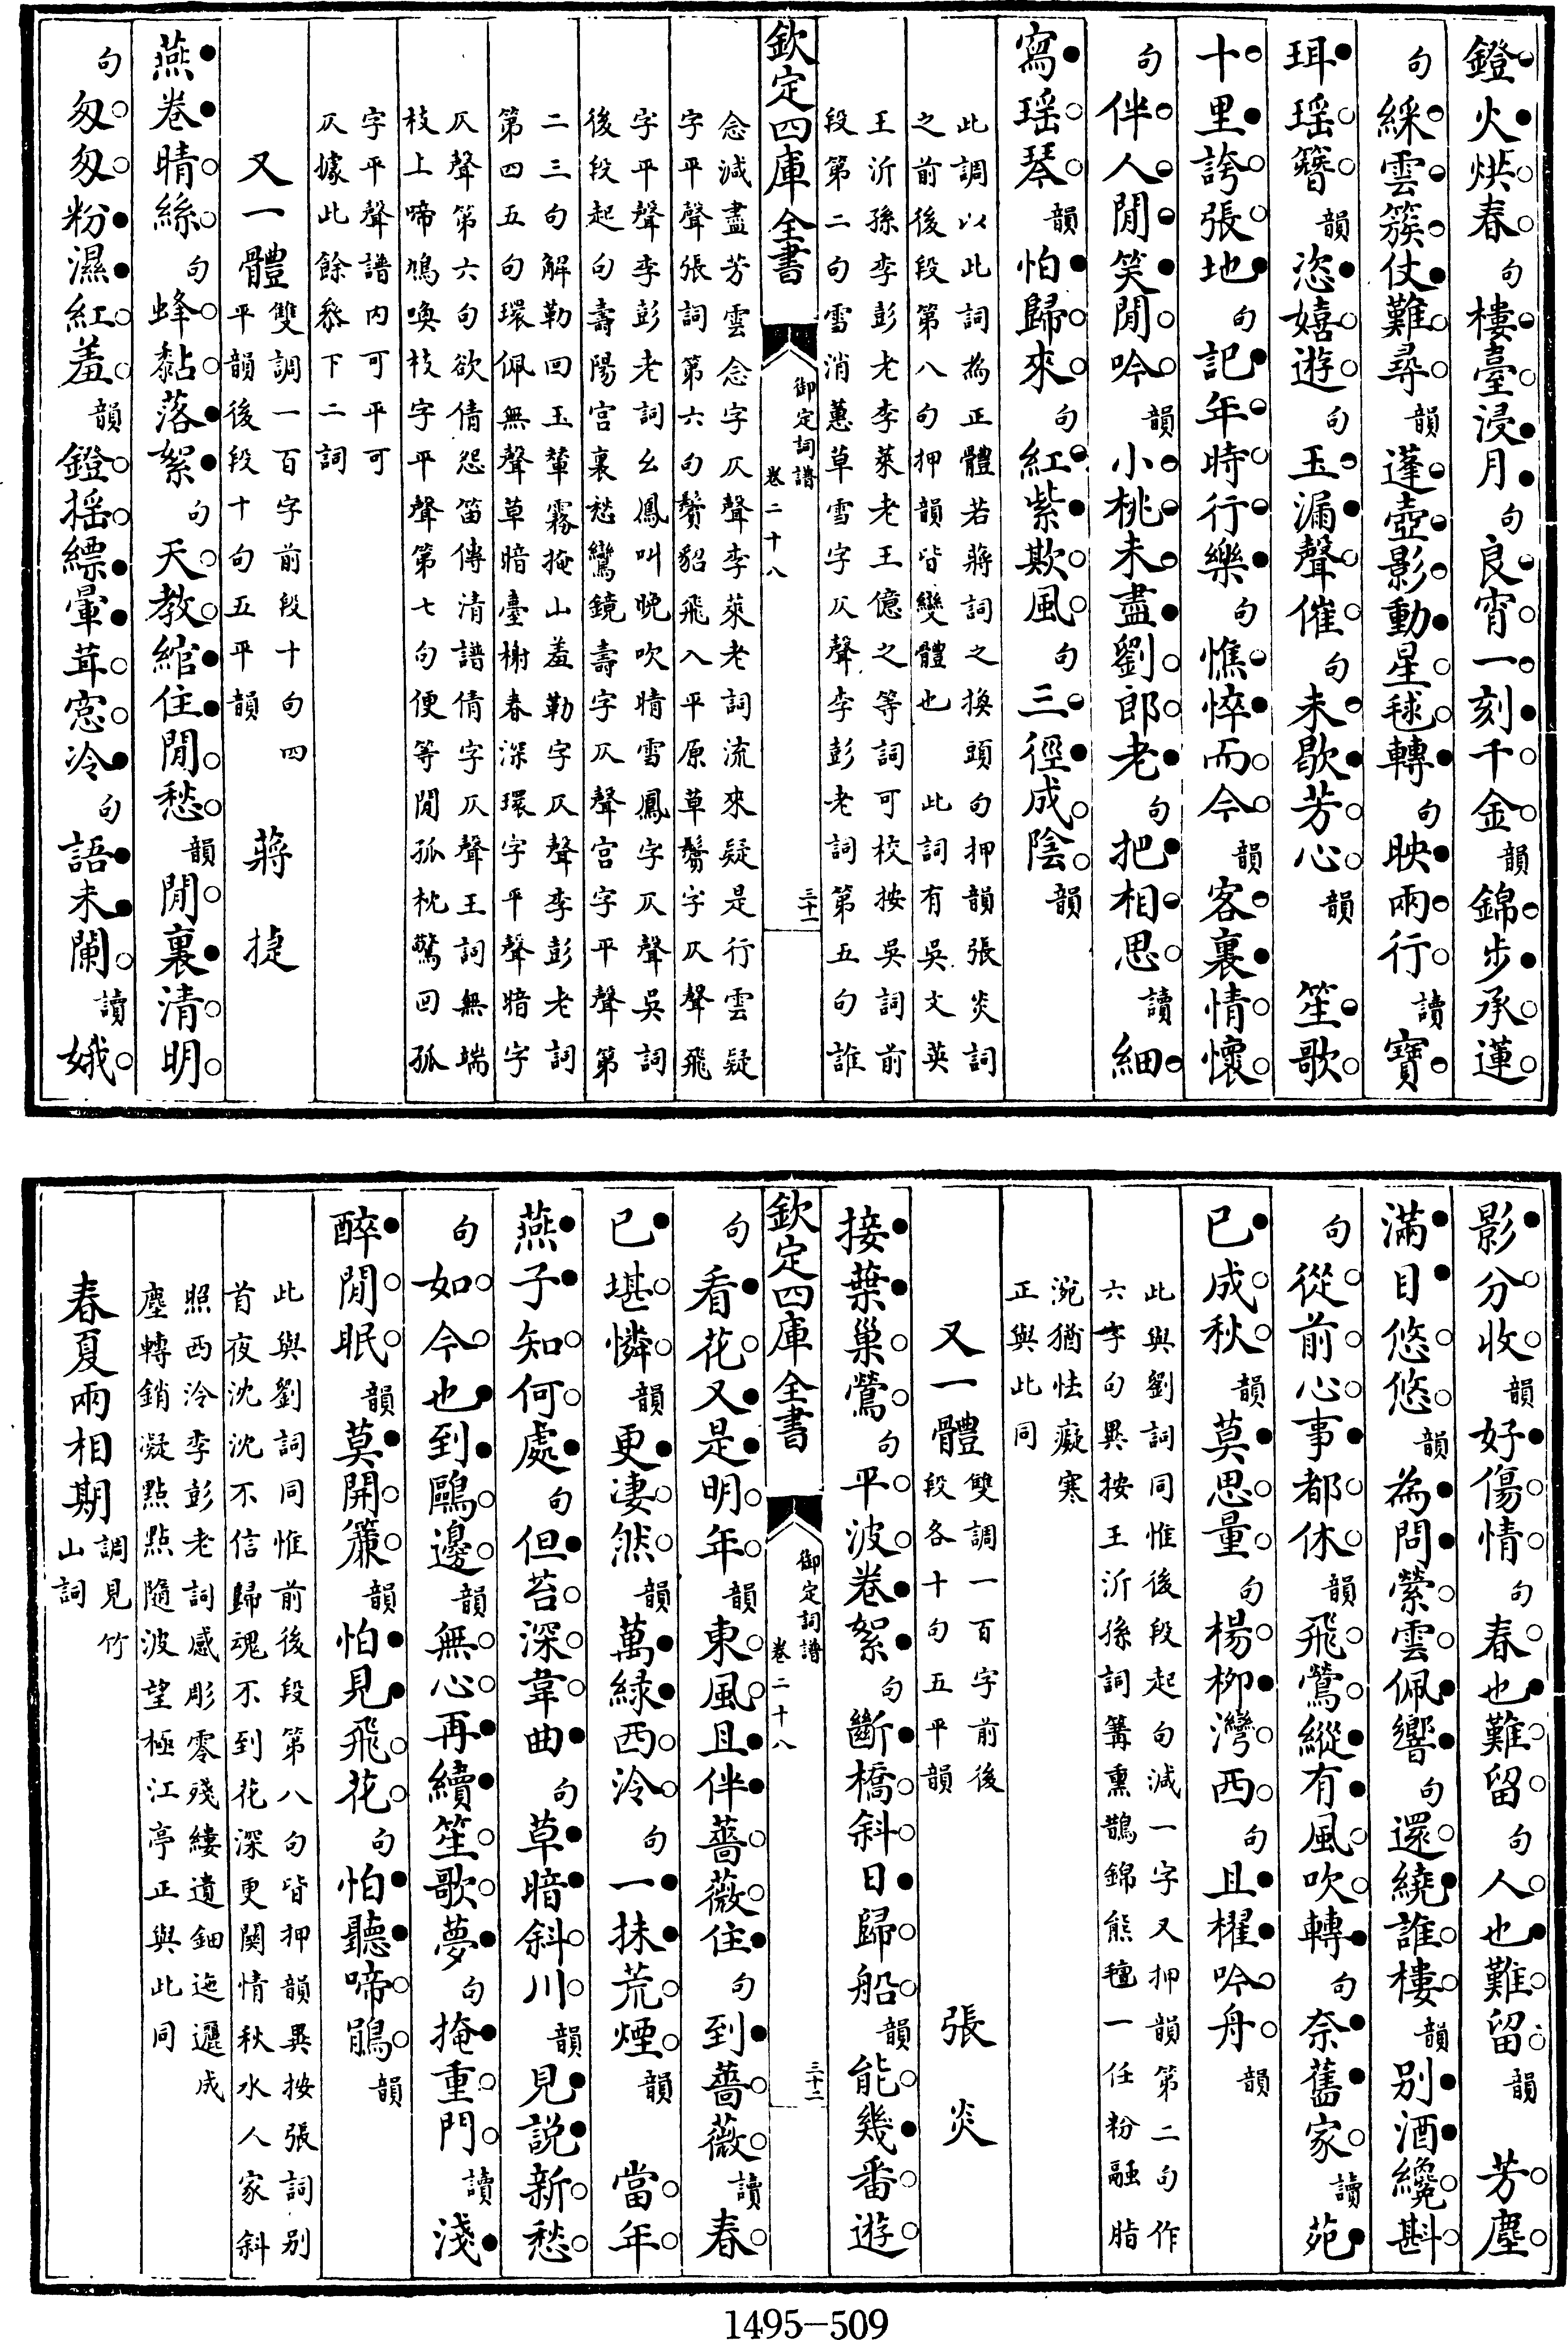 鐙火烘春句樓臺浸月句良宵一刻千金韻錦步承蓮
句綵雲簇仗難尋韻蓬壺影動星毬轉句映兩行讀寶
珥瑶簪韻恣嬉遊句玉漏聲催句未歇芳心韻　笙歌
十里誇張地句記年時行樂句憔悴而今韻客裏情懷
句伴人閒笑閒吟韻小桃未盡劉郎老句把相思讀細
寫瑶琴韻怕歸來句紅紫欺風句三徑成陰韻
此調以此詞為正體若蔣詞之換頭句押韻張炎詞
之前後段第八句押韻皆變體也　此詞有吳文英
王沂孫李彭老李萊老王億之等詞可校按吳詞前
段第二句雪消蕙草雪字仄聲李彭老詞第五句誰
欽定四庫全書　御定詞譜卷二十八　三十一
念減盡芳雲念字仄聲李萊老詞流來疑是行雲疑
字平聲張詞第六句鬢貂飛入平原草鬢字仄聲飛
字平聲李彭老詞么鳳叫晚吹晴雪鳳字仄聲吳詞
後段起句壽陽宮裏愁鸞鏡壽字仄聲宮字平聲第
二三句解勒回玉輦霧掩山羞勒字仄聲李彭老詞
第四五句環佩無聲草暗臺榭春深環字平聲暗字
仄聲第六句欲倩怨笛傳清譜倩字仄聲王詞無端
枝上啼鳩喚枝字平聲第七句便等閒孤枕驚回孤
字平聲譜內可平可
仄據此餘叅下二詞
又一體雙調一百字前段十句四平韻後段十句五平韻　蔣捷
燕卷晴絲句蜂黏落絮句天教綰住閒愁韻閒裏清明
句匆匆粉濕紅羞韻鐙摇縹暈茸窓冷句語未闌讀娥
影分收韻好傷情句春也難留句人也難留韻　芳塵
滿目悠悠韻為問縈雲佩響句還繞誰樓韻别酒纔斟
句從前心事都休韻飛鶯縱有風吹轉句奈舊家讀苑
已成秋韻莫思量句楊柳灣西句且櫂吟舟韻
此與劉詞同惟後段起句減一字又押韻第二句作
六字句異按王沂孫詞篝熏鵲錦熊氊一任粉融脂
涴猶怯癡寒
正與此同
又一體雙調一百字前後段各十句五平韻　張炎
接葉巢鶯句平波卷絮句斷橋斜日歸船韻能幾番遊
欽定四庫全書　御定詞譜卷二十八　三十二
句看花又是明年韻東風且伴薔薇住句到薔薇讀春
已堪憐韻更淒然韻萬緑西泠句一抹荒煙韻　當年
燕子知何處句但苔深韋曲句草暗斜川韻見説新愁
句如今也到鷗邊韻無心再續笙歌夢句掩重門讀淺
醉閒眠韻莫開簾韻怕見飛花句怕聽啼鵑韻
此與劉詞同惟前後段第八句皆押韻異按張詞别
首夜沈沈不信歸魂不到花深更關情秋水人家斜
照西泠李彭老詞感彫零殘縷遺鈿迤邐成
塵轉銷凝點點隨波望極江亭正與此同
春夏兩相期調見竹山詞
1495-509